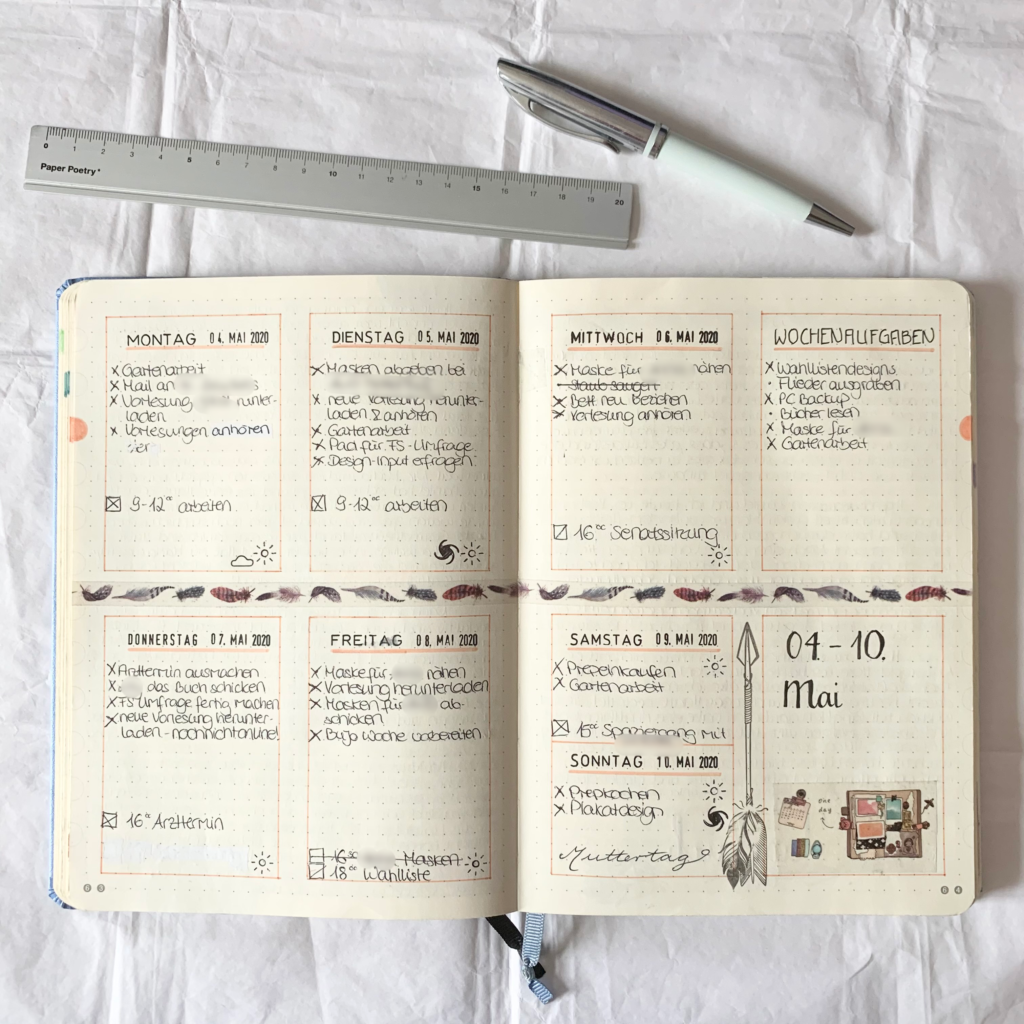 0 1 2 3 4 5 6 7 8 9 10 11 12 13 14 15 16 17 18 19 20
Paper Poetry
MONTAG 04. MAI 2020
x Gartenarbeit
x Mail an
x Vorlesung runter-
laden
x Vorlesungen anhören
9-12°° arbeiten
DIENSTAG 05. MAI 2020
x Masken abgeben bei
x neue Vorlesung herunter-
laden & anhören
x Gartenarbeit
x Pad für FS-Umfrage
x Design-Input erfragen
9-12°° arbeiten
MITTWOCH 06. MAI 2020
x Maske für nähen
- Staub saugen
x Bett neu beziehen
x Vorlesung anhören
16°° Senatssitzung
WOCHENAUFGABEN
x Wahllistendesigns
• Flieder ausgraben
x PC Backup
• Bücher lesen
x Maske für
x Gartenarbeit
DONNERSTAG 07. MAI 2020
x Arzttermin ausmachen
x das Buch schicken
x FS-Umfrage fertig machen
x neue Vorlesung herunter-
laden - noch nicht online!
16°° Arzttermin
FREITAG 08. MAI 2020
x Maske für nähen
x Vorlesung herunterladen
x Masken für ab-
schicken
x BuJo Woche vorbereiten
16°° Masken
18°° Wahlliste
SAMSTAG 09. MAI 2020
x Prepeinkaufen
x Gartenarbeit
16°° Spaziergang mit
SONNTAG 10. MAI 2020
x Prepkochen
x Plakatdesign
Muttertag
04. - 10.
Mai
day
63
64